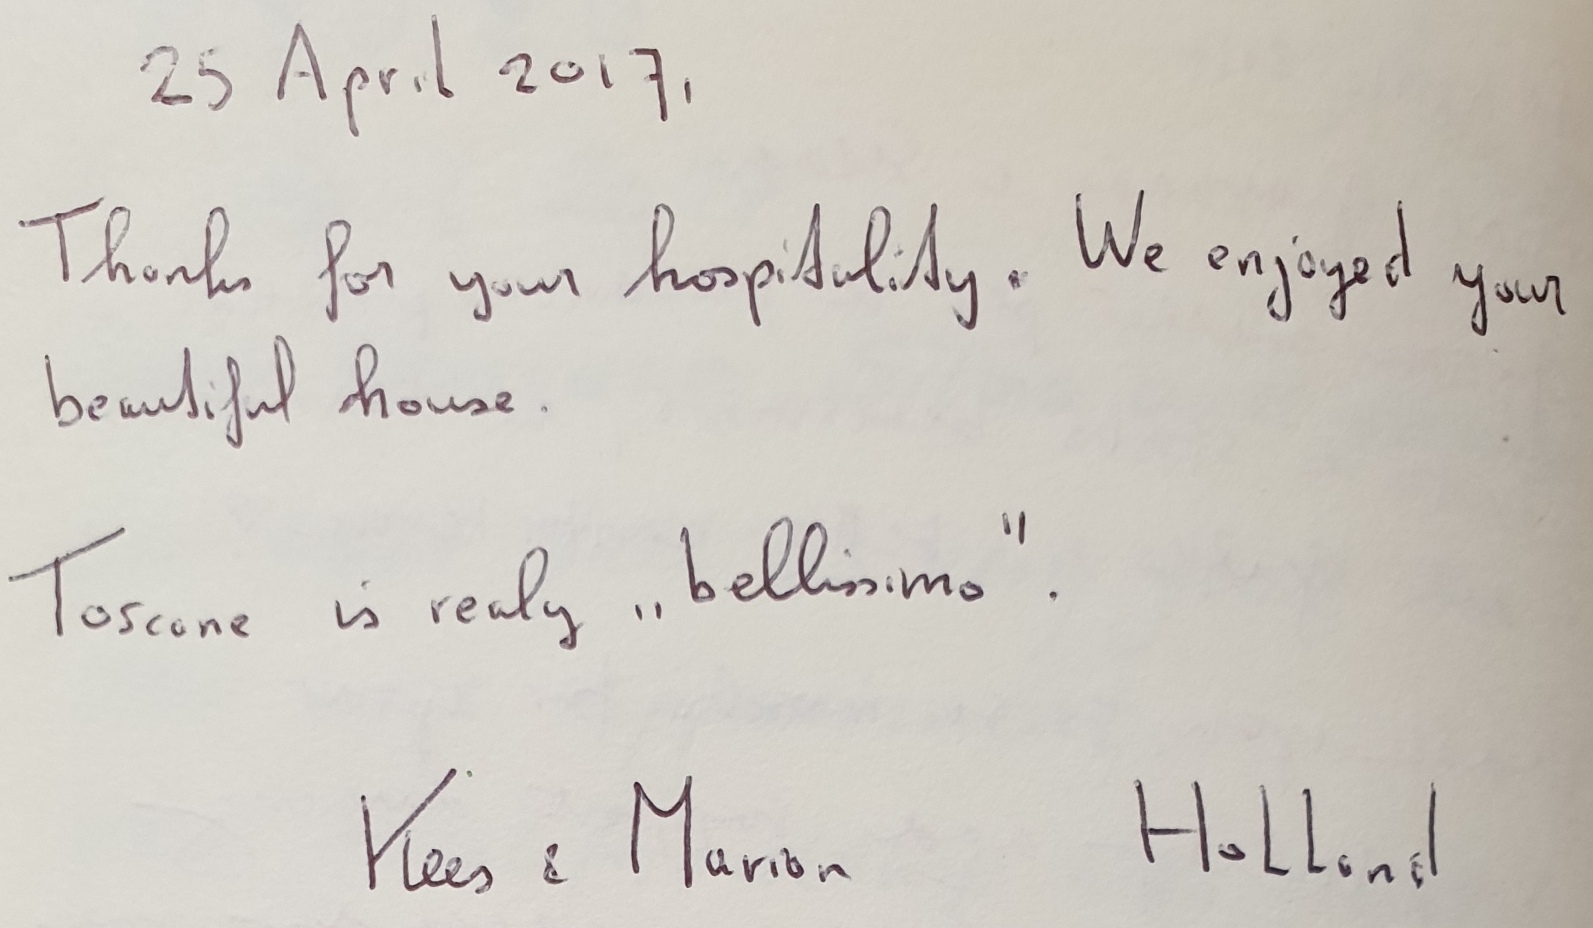 25 April 2017,
Thanks for your hospitality. We enjoyed your
beautiful house.
Toscane is realy „bellissimo".
Kees & Marion Holland